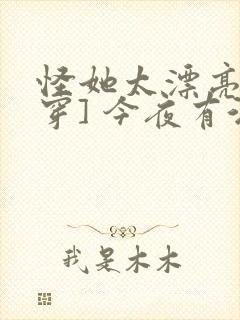 怪她太漂亮
穿]今夜有
我是木木